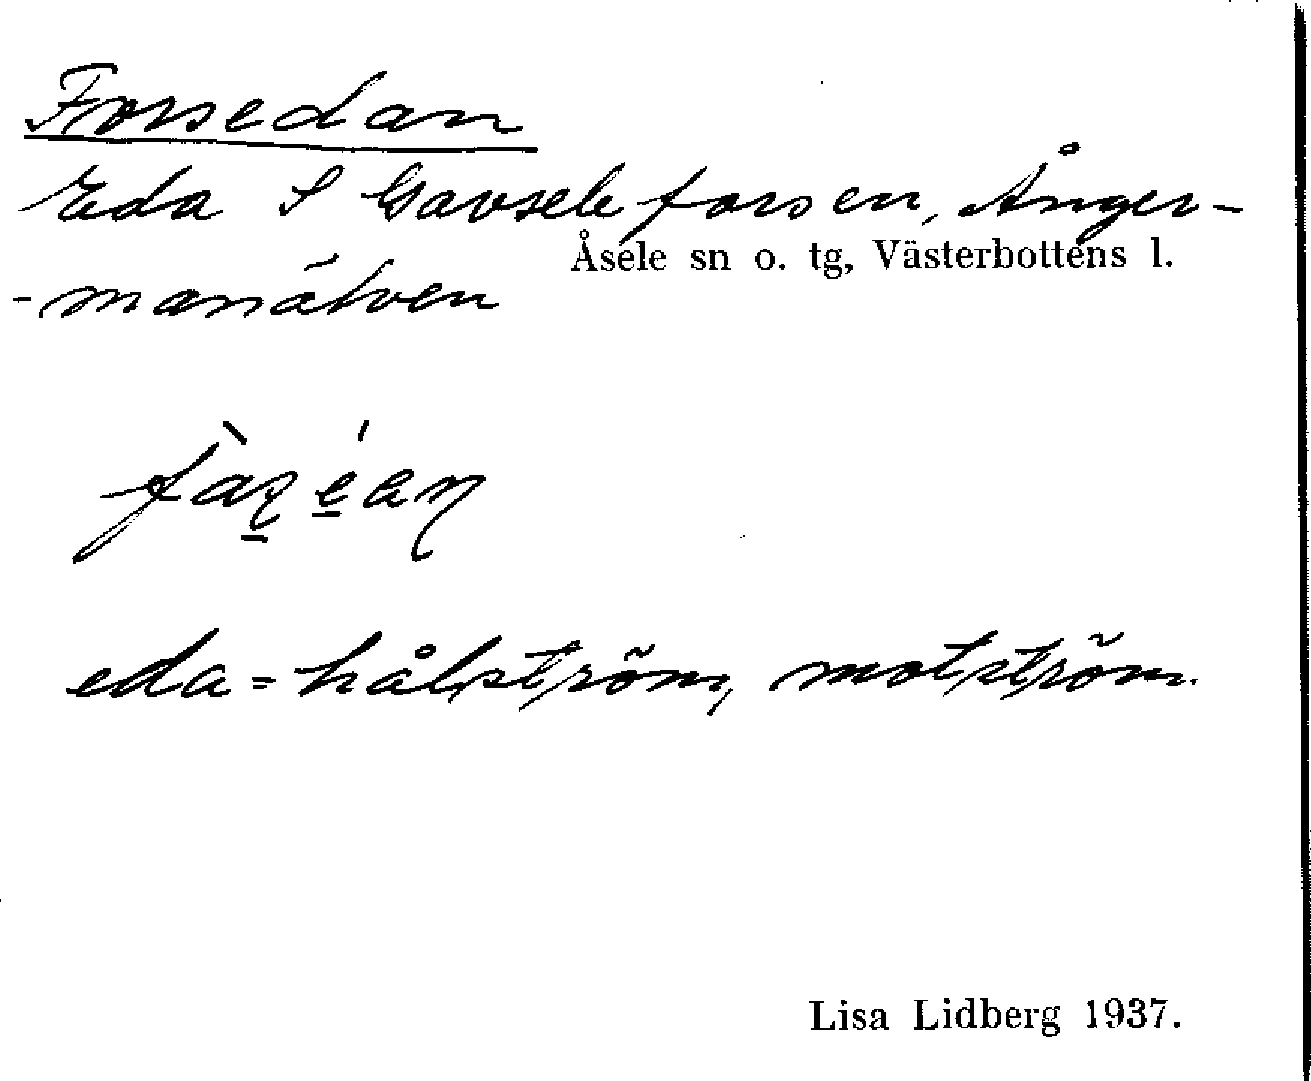 Forsedan
Eda S Gavseleforsen, Ånger-
Åsele sn o. tg, Västerbottens l.
-manälven
eda = hålström, motström.
Lisa Lidberg 1937.